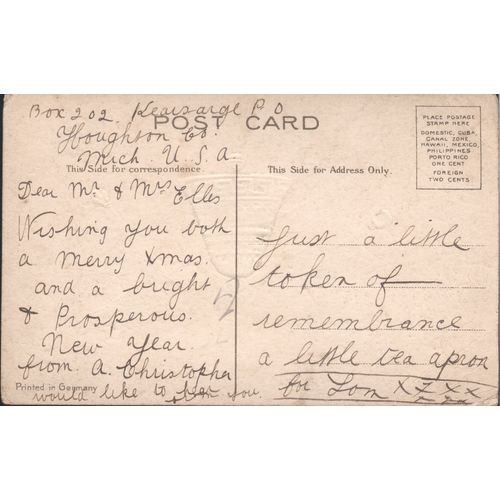 Box 202. Kearsarge P O
Houghton Co.
Mich. U. S. A
POST CARD
This Side for correspondence.
This Side for Address Only.
PLACE POSTAGE
STAMP HERE
DOMESTIC, CUBA,
CANAL ZONE
HAWAII, MEXICO,
PHILIPPINES
PORTO RICO
ONE CENT
FOREIGN
TWO CENTS
Dear Mr & Mrs Elles
Wishing you both
a Merry Xmas.
and a bright
& Prosperous.
New Year.
from A. Christopher
would like to hear
you.
Printed in Germany
Just a little
token of
remembrance
a little tea apron
for Lom X X X X